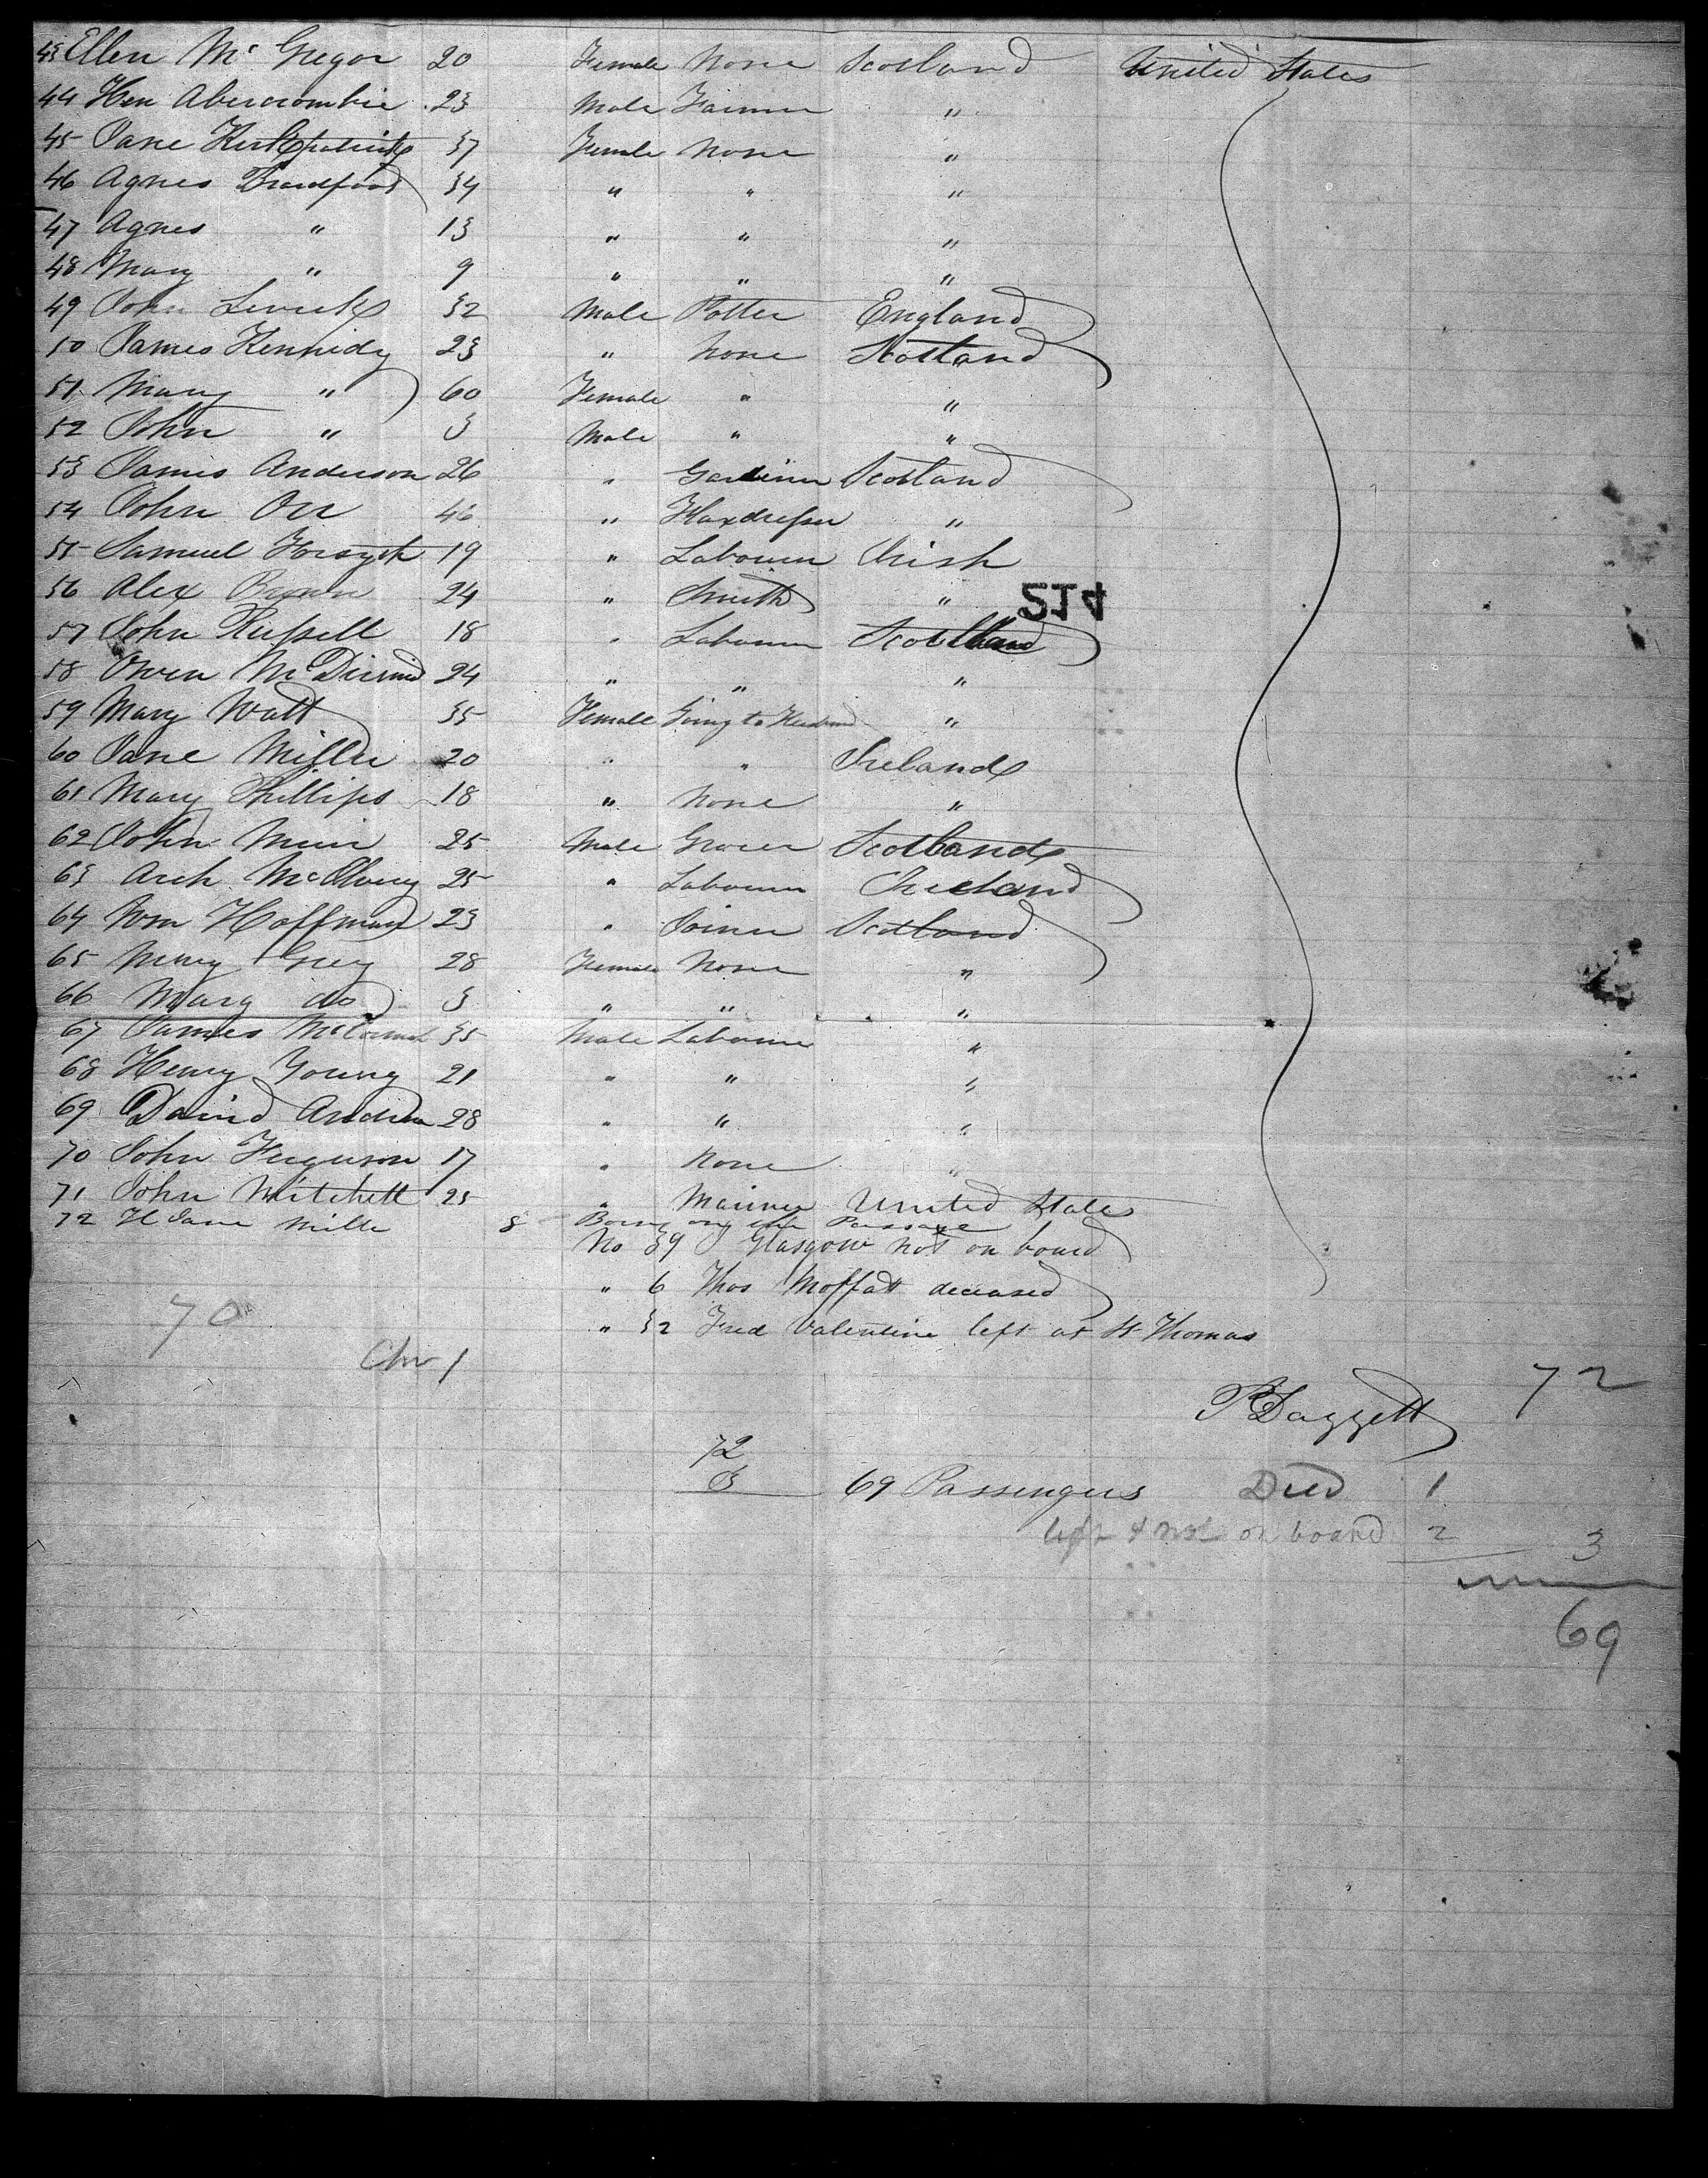 43 Ellen Mc Gregor 20 Female None Scotland United States
44 Hen Abercrombie 23 Male Farmer "
45 Jane Kirkpatrick 37 Female None "
46 Agnes Brandford 34 " " "
47 Agnes " 13 " " "
48 Mary " 9 " " "
49 John 32 Male Potter England
50 James Kennidy 23 " None Scotland
51 Mary " 60 Female " "
52 John " 3 Male " "
53 James Anderson 26 " Gardiner Scotland
54 John Orr 46 " Flaxdresser "
55 Samuel Forsyth 19 " Labourer Irish
56 Alex Brown 24 " Smith "
214
57 John Russell 18 " Labourer Scotland
58 Owen McDirmid 24 " " "
59 Mary Watt 35 Female Going to Husband "
60 Jane Miller 20 " " Ireland
61 Mary Phillips 18 " None "
62 John Muir 25 Male Grocer Scotland
63 Arch 25 " Labourer Ireland
64 Wm Hoffman 23 " Joiner Scotland
65 Mary Grey 28 Female None "
66 Mary do 3 " " "
67 James 35 Male Labourer "
68 Henry Young 21 " " "
69 David Andrew 28 " " "
70 John Ferguson 17 " None "
71 John Mitchell 25 " Mariner United States
72 H Jane Mille 8 Born on the Passage
No 39 J Glasgow not on board
" 6 Thos Moffatt deceased
" 32 Fred Valentine left at St Thomas
70
1
72
P Daggett
72
3 69 Passengers Died 1
left & not on board 2 3
69